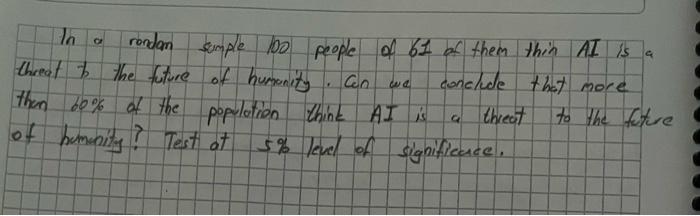 In a rondan sumple 100 people of 61 of them thin AI is a
threat to the future of humonity. Can we conclude that more
then 60% of the populotion think AI is a threot to the fcture
of humunity? Test at 5% level of significauce.